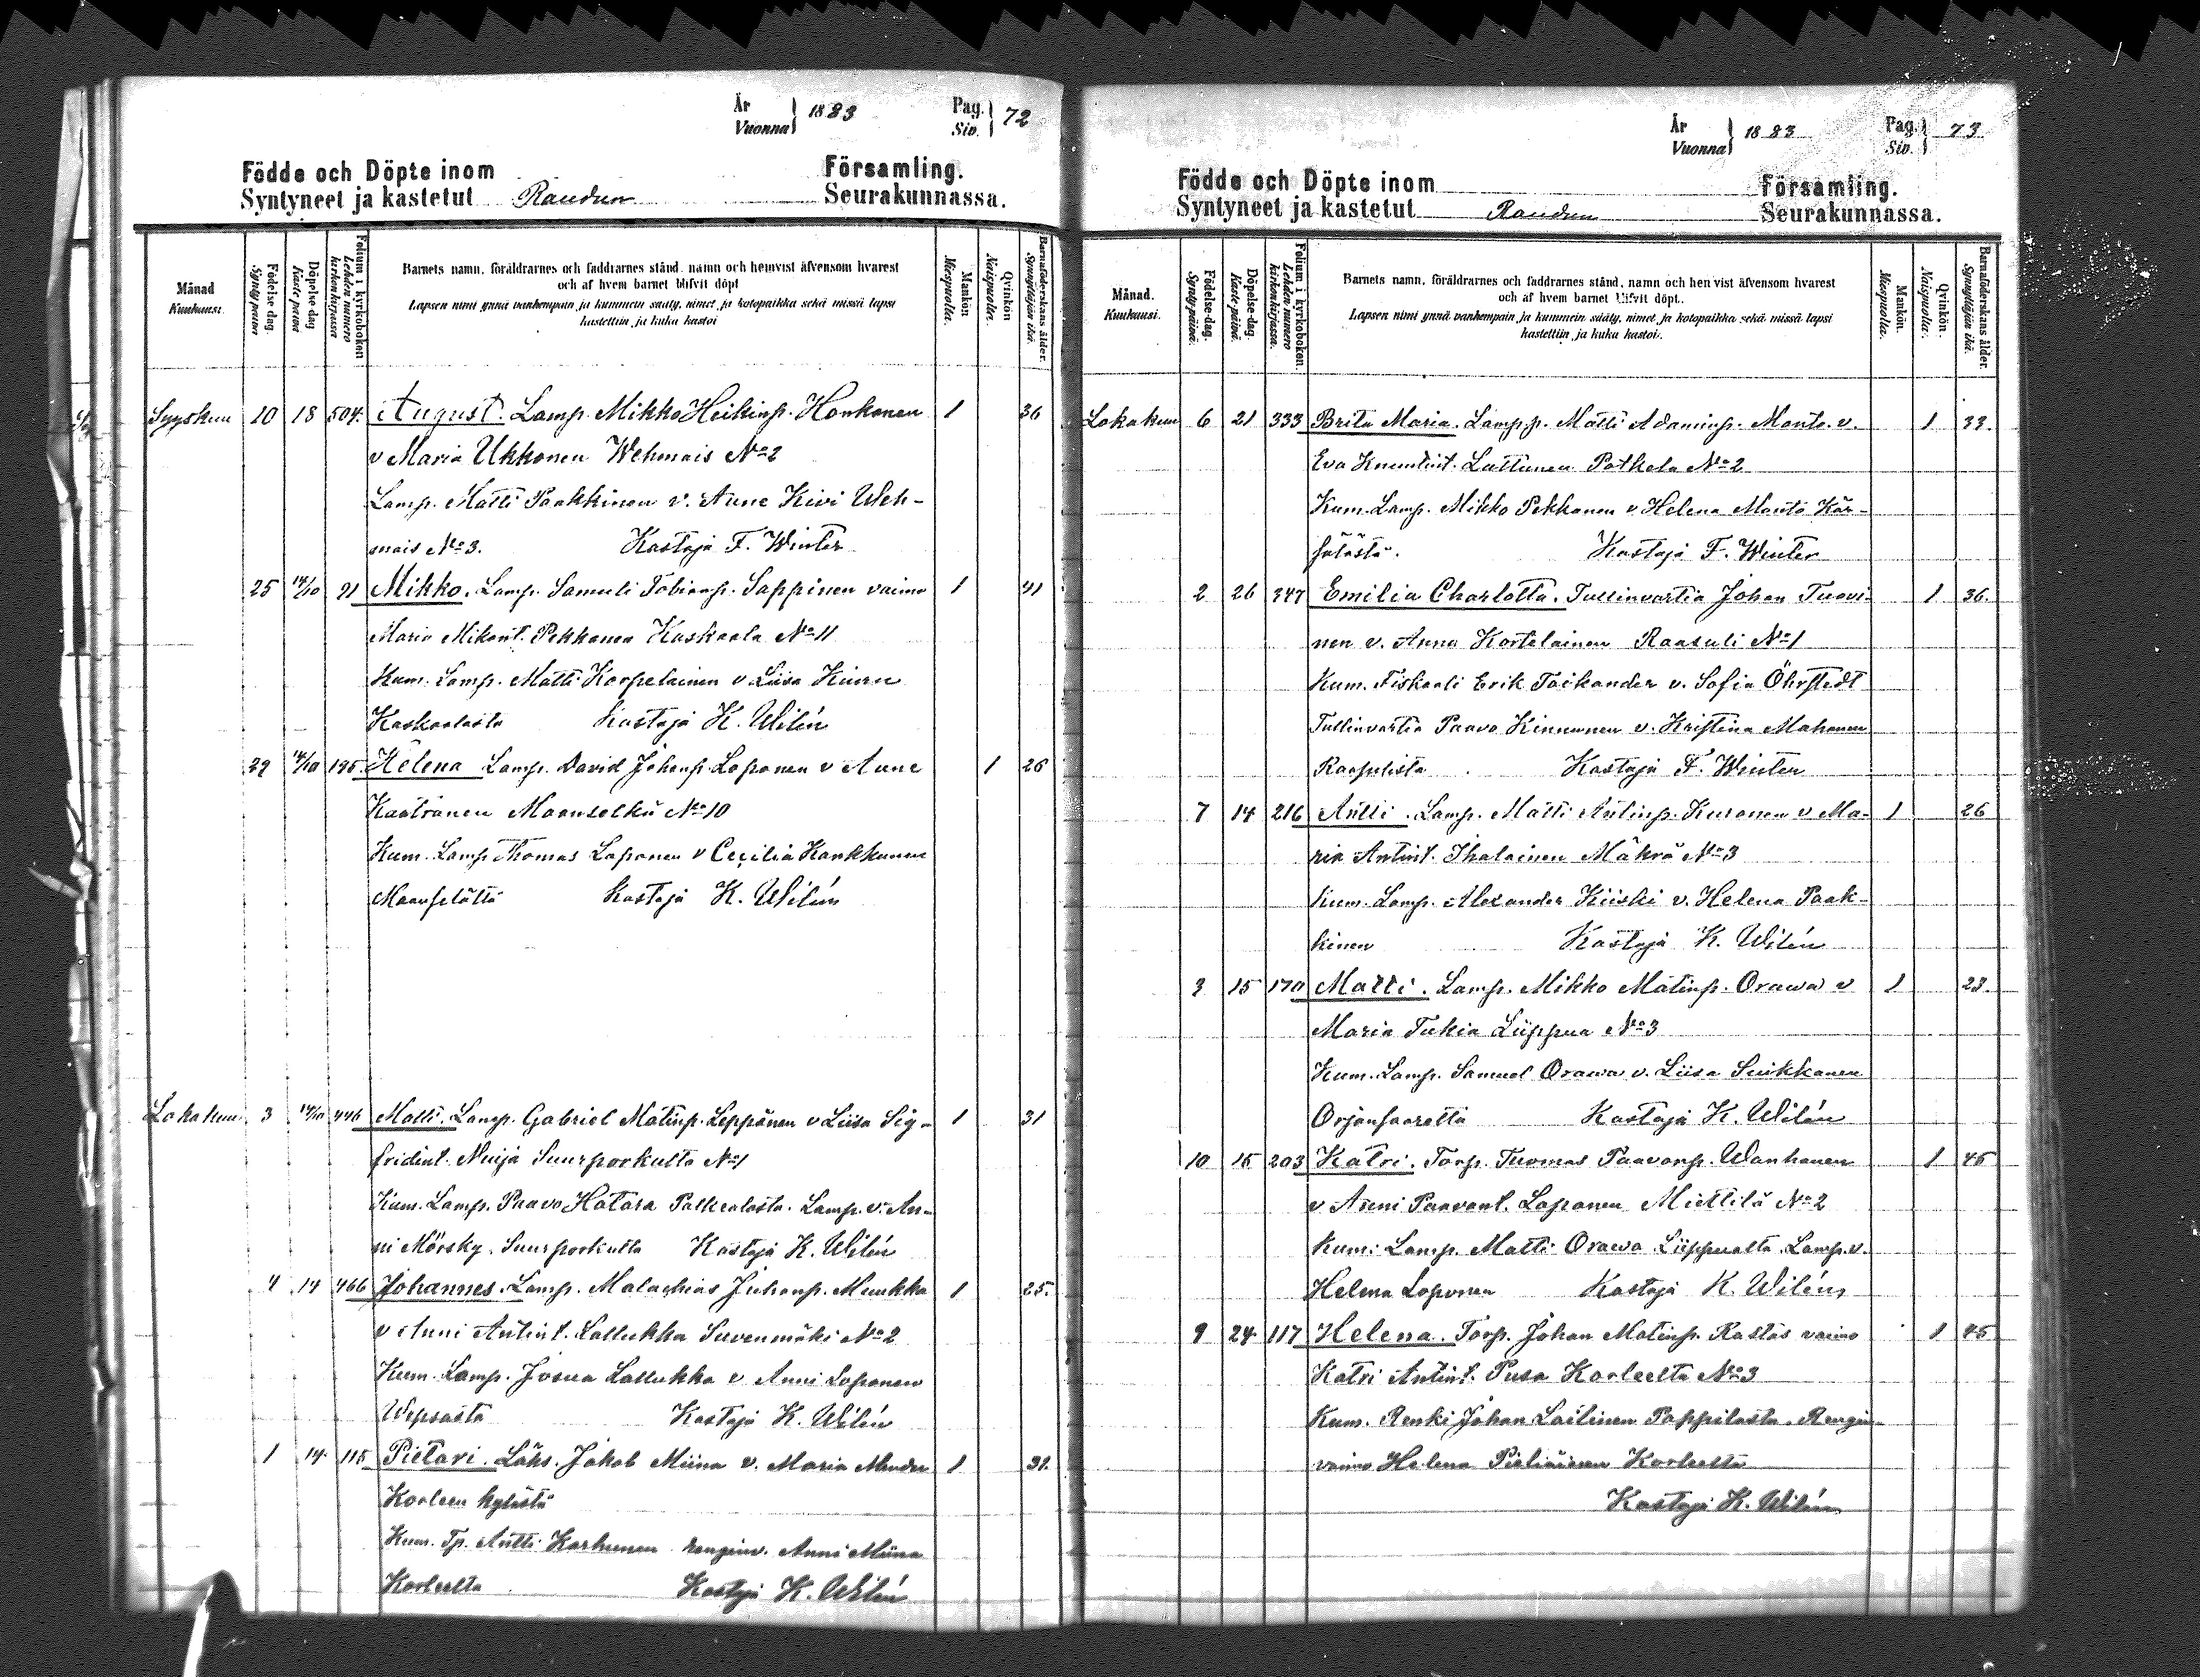 År
Vuonna } 1883 Pag. Siv. } 72
Födde och Döpte inom Församling.
Syntyneet ja kastetut Raudun Seurakunnassa.
Månad Kuukausi.
Födelse dag. Synty päivä
Döpelse dag Kaste päivä
Folium i kyrkoboken Lehden numero kirkonkirjassa
Barnets namn, föräldrarnes och faddrarnes stånd, namn och hemvist äfvensom hvarest
och af hvem barnet blifvit döpt
Lapsen nimi ynnä vanhempain ja kummein sääty, nimet ja kotopaikka sekä missä lapsi
kastettiin ja kuka kastoi
Mankön Miespuolia.
Qvinkön Naispuolia.
Barnaföderskans ålder. Synnyttäjän ikä.
Syyskuu 10 18 504. August. Lamp. Mikko Heikinp. Honkanen 1 36
v Maria Ukkonen Wehmais No 2
Lamp. Matti Paakkinen v. Anne Kivi Weh-
mais No 3. Kastaja F. Winter
25 14/10 91 Mikko. Lamp. Samuli Tobiasp. Sappinen vaimo 1 41
Maria Mikont. Pekkanen Kaskaala No 11
Kum. Lamp. Matti Korpelainen v Liisa Kiuru
Kaskaalasta Kastaja K. Wilén
29 14/10 195. Helena Lamp. David Johanp. Loponen v Anne 1 26
Kaatranen Maanselkä No 10
Kum. Lamp. Thomas Loponen v Cecilia Kankkunen
Maanselältä Kastaja K. Wilén
Lokakuu 3 14/10 446 Matti. Lamp. Gabriel Matinp. Leppänen v Liisa Sig- 1 31
fridint. Nuija Suurporkulta No 1
Kum. Lamp. Paavo Hatara Palkealasta. Lamp. v. An-
ni Mörsky. Suurporkulta Kastaja K. Wilén
4 14 466 Johannes. Lamp. Malachias Juhanp. Muukka 1 25.
v Anni Antint. Lallukka Suvenmäki No 2
Kum. Lamp. Josua Lallukka v Anni Loponen
Wepsasta Kastaja K. Wilén
1 14. 115 Pietari. Läks. Jakob Miina v. Maria 1 31.
Korleen kylästä
Kum. Tp. Antti Karhunen renginv. Anni Miina
Korleelta Kastaja K. Wilén
År
Vuonna } 1883 Pag. Siv. } 73
Födde och Döpte inom Församling.
Syntyneet ja kastetut Raudun Seurakunnassa.
Månad. Kuukausi.
Födelse-dag. Syntypäivä.
Döpelse-dag. Kaste-päivä.
Folium i kyrkoboken. Lehden numero kirkonkirjassa.
Barnets namn, föräldrarnes och faddrarnes stånd, namn och hemvist äfvensom hvarest
och af hvem barnet blifvit döpt.
Lapsen nimi ynnä vanhempain ja kummein sääty, nimet ja kotopaikka sekä missä lapsi
kastettiin ja kuka kastoi.
Mankön. Miespuolia.
Qvinkön. Naispuolia.
Barnaföderskans ålder. Synnyttäjän ikä.
Lokakuu 6 21 333 Brita Maria. Lampp. Matti Adaminp. Monto. v. 1 33.
Eva Knuutint. Lattunen Potkela No 2
Kum. Lamp. Mikko Pekkanen v Helena Monto Kär-
sälästä. Kastaja F. Winter
2 26 347 Emilia Charlotta. Tullinvartia Johan Tuovi- 1 36.
nen v. Anna Kortelainen Raasuli No 1
Kum. Fiskaali Erik Toikander v. Sofia Öhrstedt
Tullinvartia Paavo Kinnunen v. Kristina Mahonen
Raasulista Kastaja F. Winter
7 14 216 Antti. Lamp. Matti Antinp. Kuronen v Ma- 1 26
ria Antint. Ihalainen Mäkrä No 3
Kum. Lamp. Alexander Kiiski v. Helena Paak-
kinen Kastaja K. Wilén
3 15 170 Matti. Lamp. Mikko Matinp. Orawa v 1 23.
Maria Tukia Liippua No 3
Kum. Lamp. Samuel Orawa v. Liisa Suikkanen
Orjansaarelta Kastaja K. Wilén
10 15 203 Katri. Torp. Tuomas Paavonp. Wanhanen 1 45
v Anni Paavont. Loponen Miettilä No 2
Kum: Lamp. Matti Orawa Liippualta. Lamp. v.
Helena Loponen Kastaja K. Wilén
9 24 117 Helena. Torp. Johan Matinp. Rastas vaimo 1 45
Katri Antint. Pusa Korleelta No 3
Kum. Renki Johan Laitinen Pappilasta. Rengin
vaimo Helena Pieliäinen Korleelta
Kastaja K. Wilén